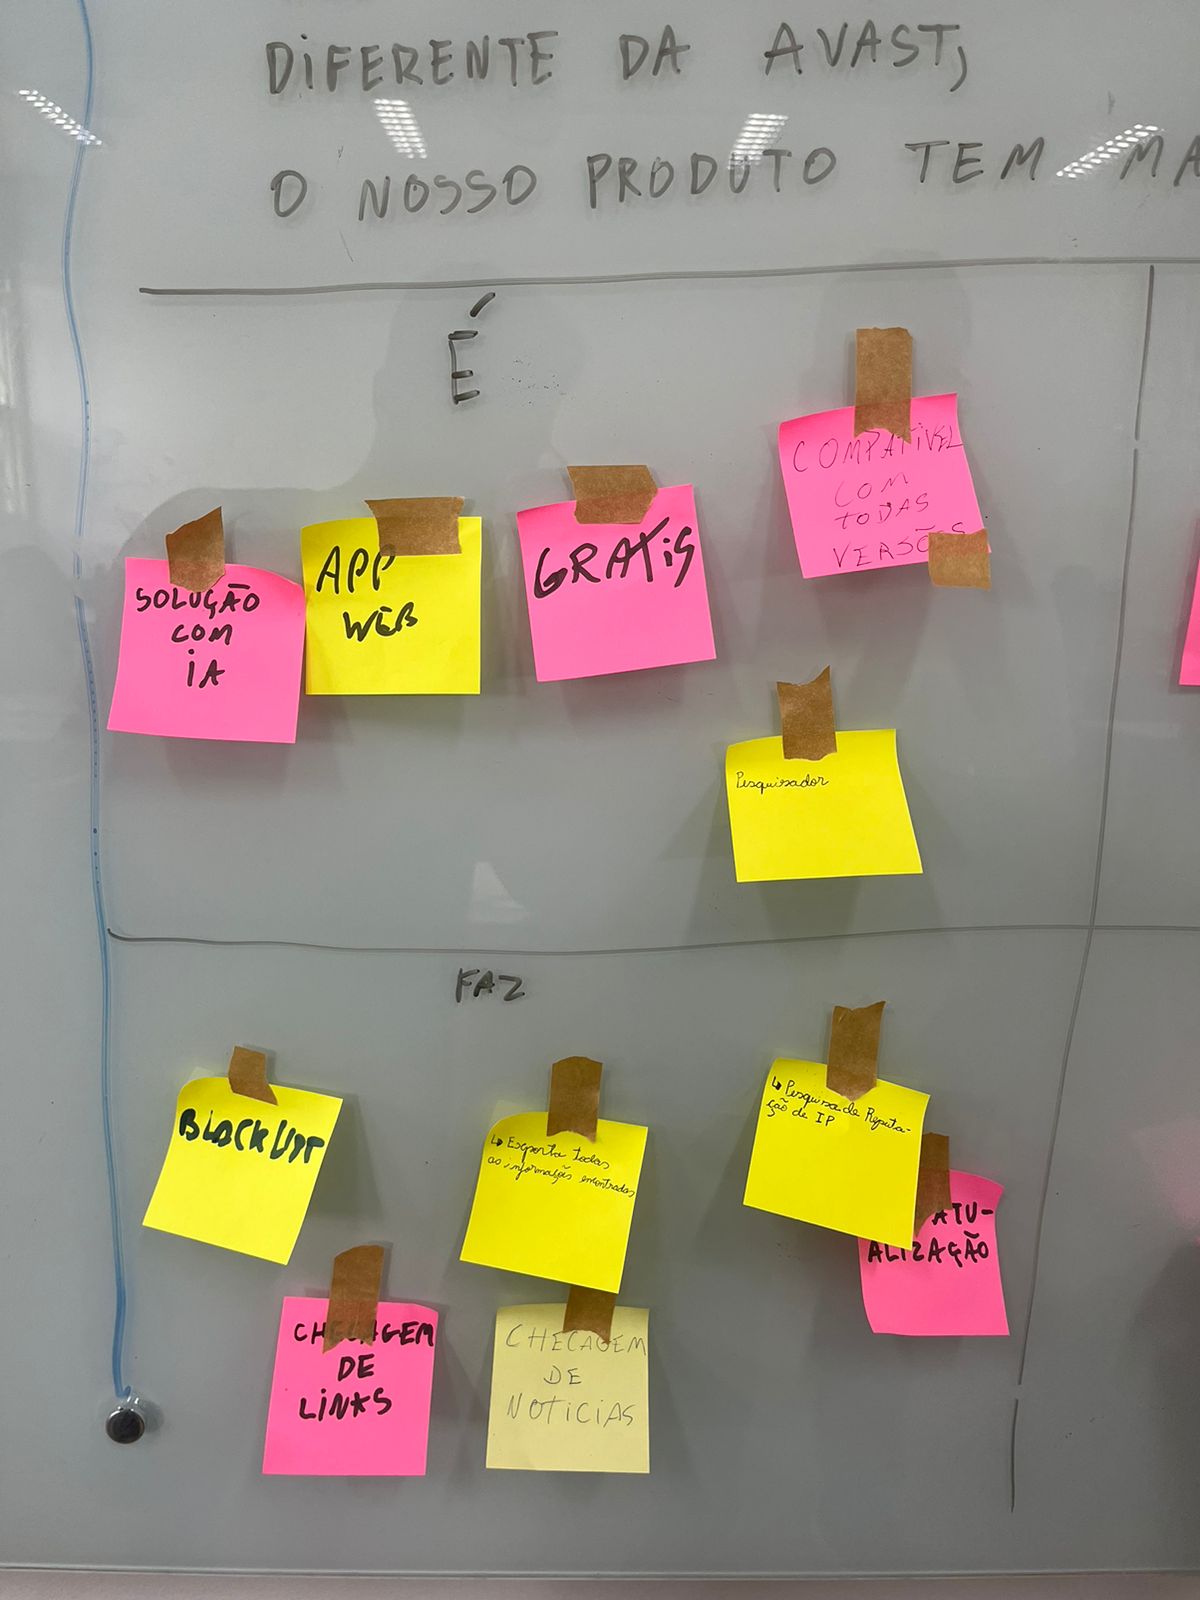 DIFERENTE DA AVAST,
O NOSSO PRODUTO TEM MA
É
SOLUÇÃO
COM
IA
APP
WEB
GRATIS
COMPATÍVEL
COM
TODAS
VERSÕES
Pesquisador
FAZ
BLACKLIST
↳ Exporta todas
as informações encontradas
↳ Pesquisa de Reputa-
ção de IP
ATU-
ALIZAÇÃO
CHECAGEM
DE
LINKS
CHECAGEM
DE
NOTICIAS